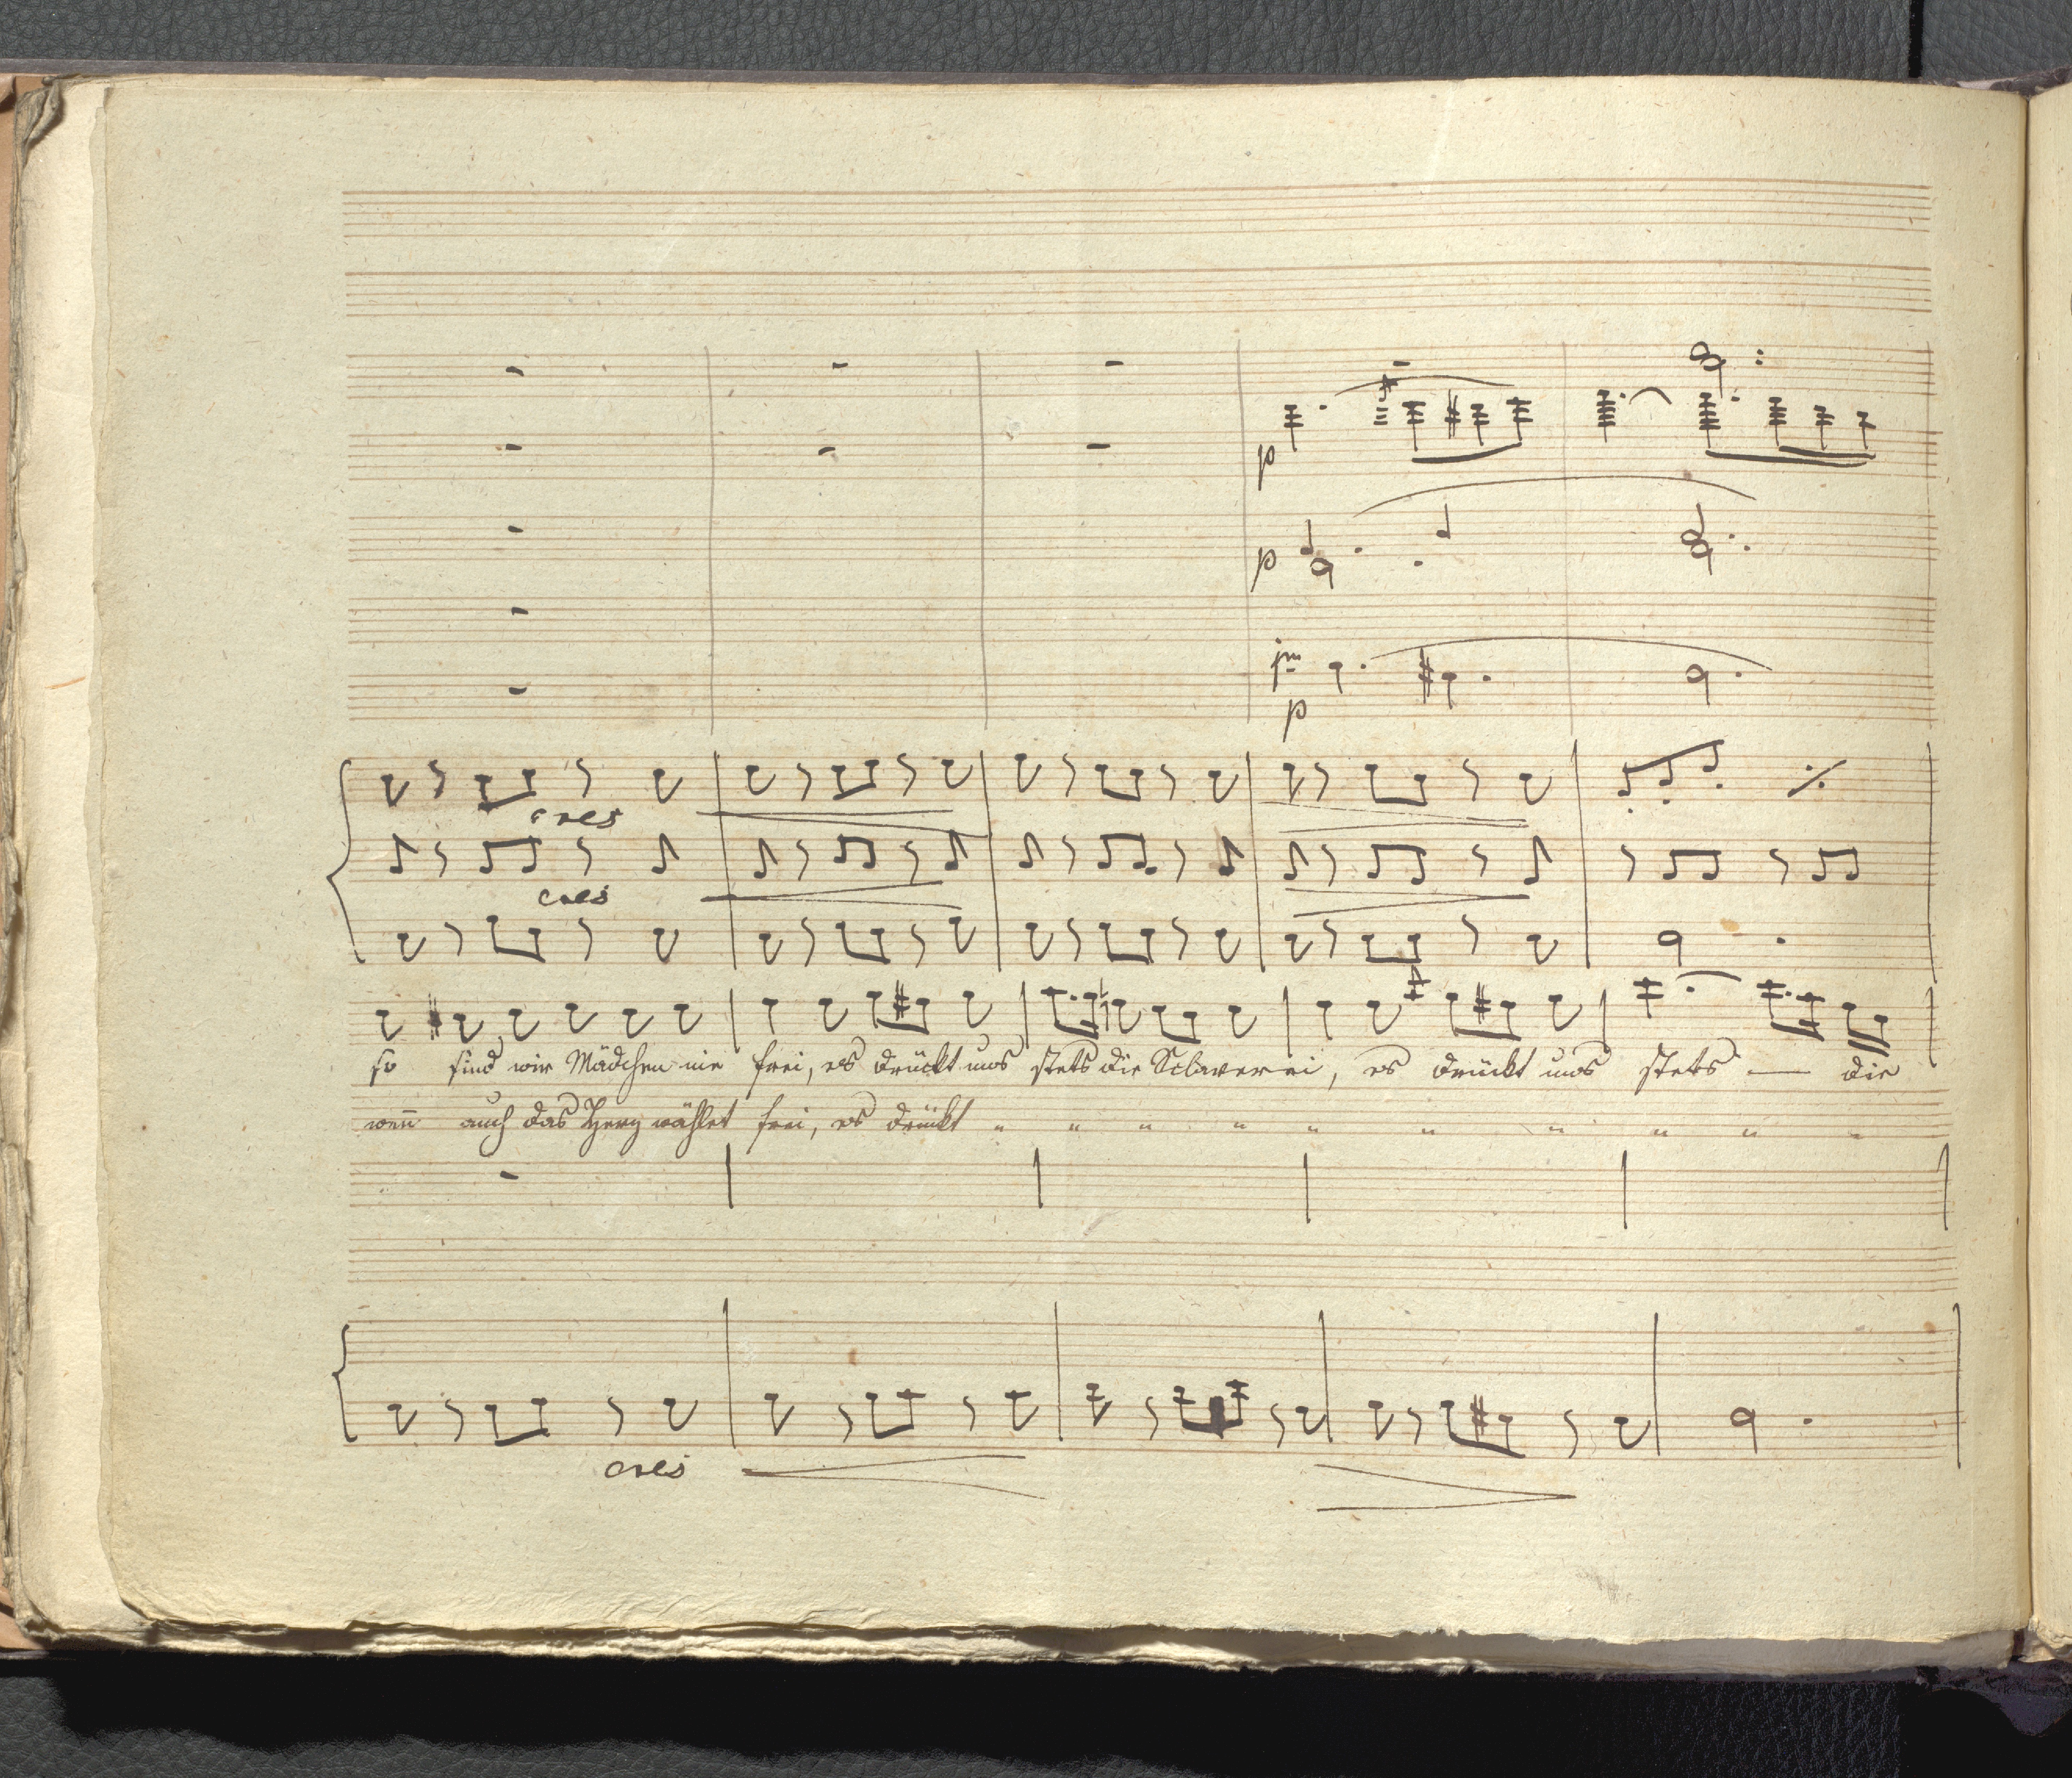 p
p
im
p
cres
cres
so sind wir Mädchen nie frei, es drückt uns stets die Sclaverei, es drückt uns stets — die
wen̄ auch das Herz wählet frei, es drückt " " " " " " " " " "
cres